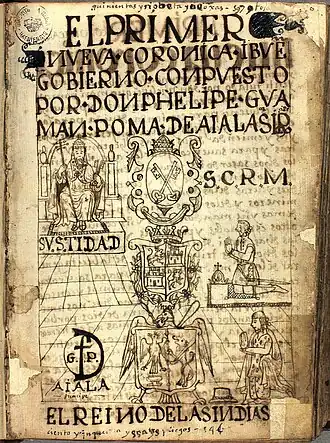 EL PRIMER
NVEVA·CORONICA·IBVE
GOBIERNO·CONPVESTO
POR·DON PHELIPE·GVA
MAN·POMA·DE AIALA SIR
S.C.R.M.
SV. STIDAD
G. P.
AIALA
principe
EL REINO DE LAS INDIAS